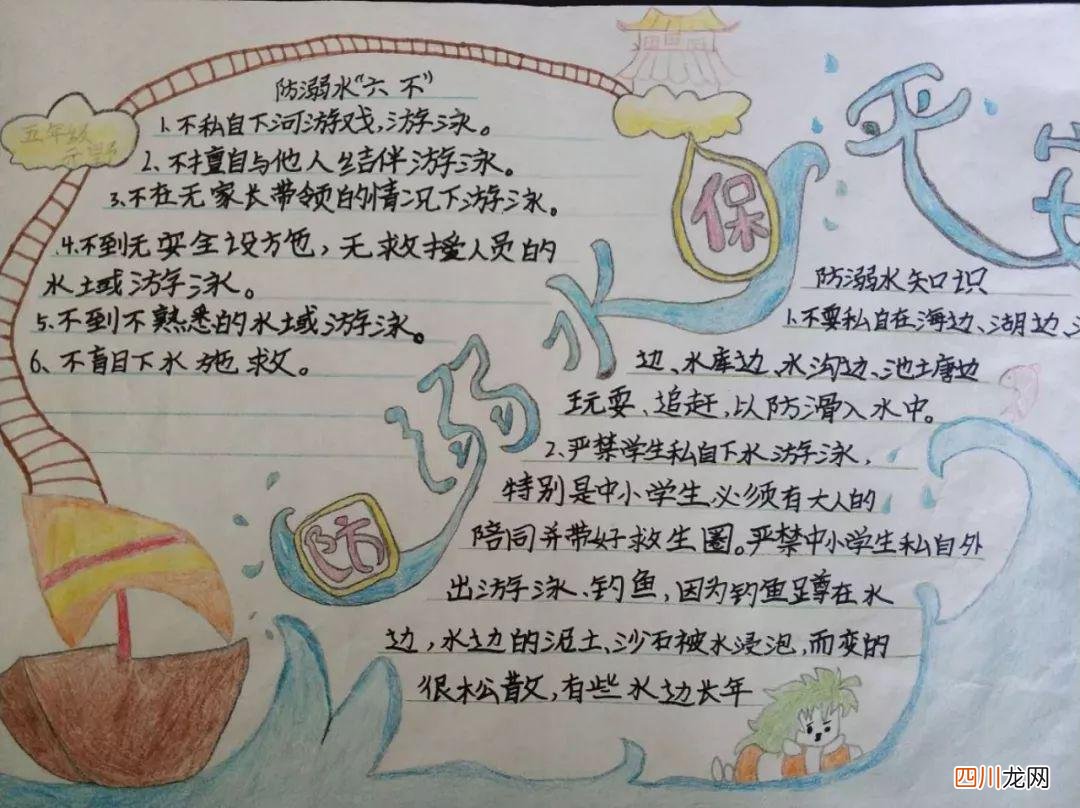 防溺水保平安
五年级
防溺水“六不”
1.不私自下河游戏,游泳。
2.不擅自与他人结伴游泳。
3.不在无家长带领的情况下游泳。
4.不到无安全设方包,无救援人员的
水域游泳。
5.不到不熟悉的水域游泳。
6、不盲目下水施救。
防溺水知识
1.不要私自在海边、湖边、
边、水库边、水沟边、池塘边
玩耍、追赶,以防滑入水中。
2、严禁学生私自下水游泳,
特别是中小学生必须有大人的
陪同并带好救生圈。严禁中小学生私自外
出游泳、钓鱼,因为钓鱼蹲在水
边,水边的泥土、沙石被水浸泡,而变的
很松散,有些水边长年
四川龙网